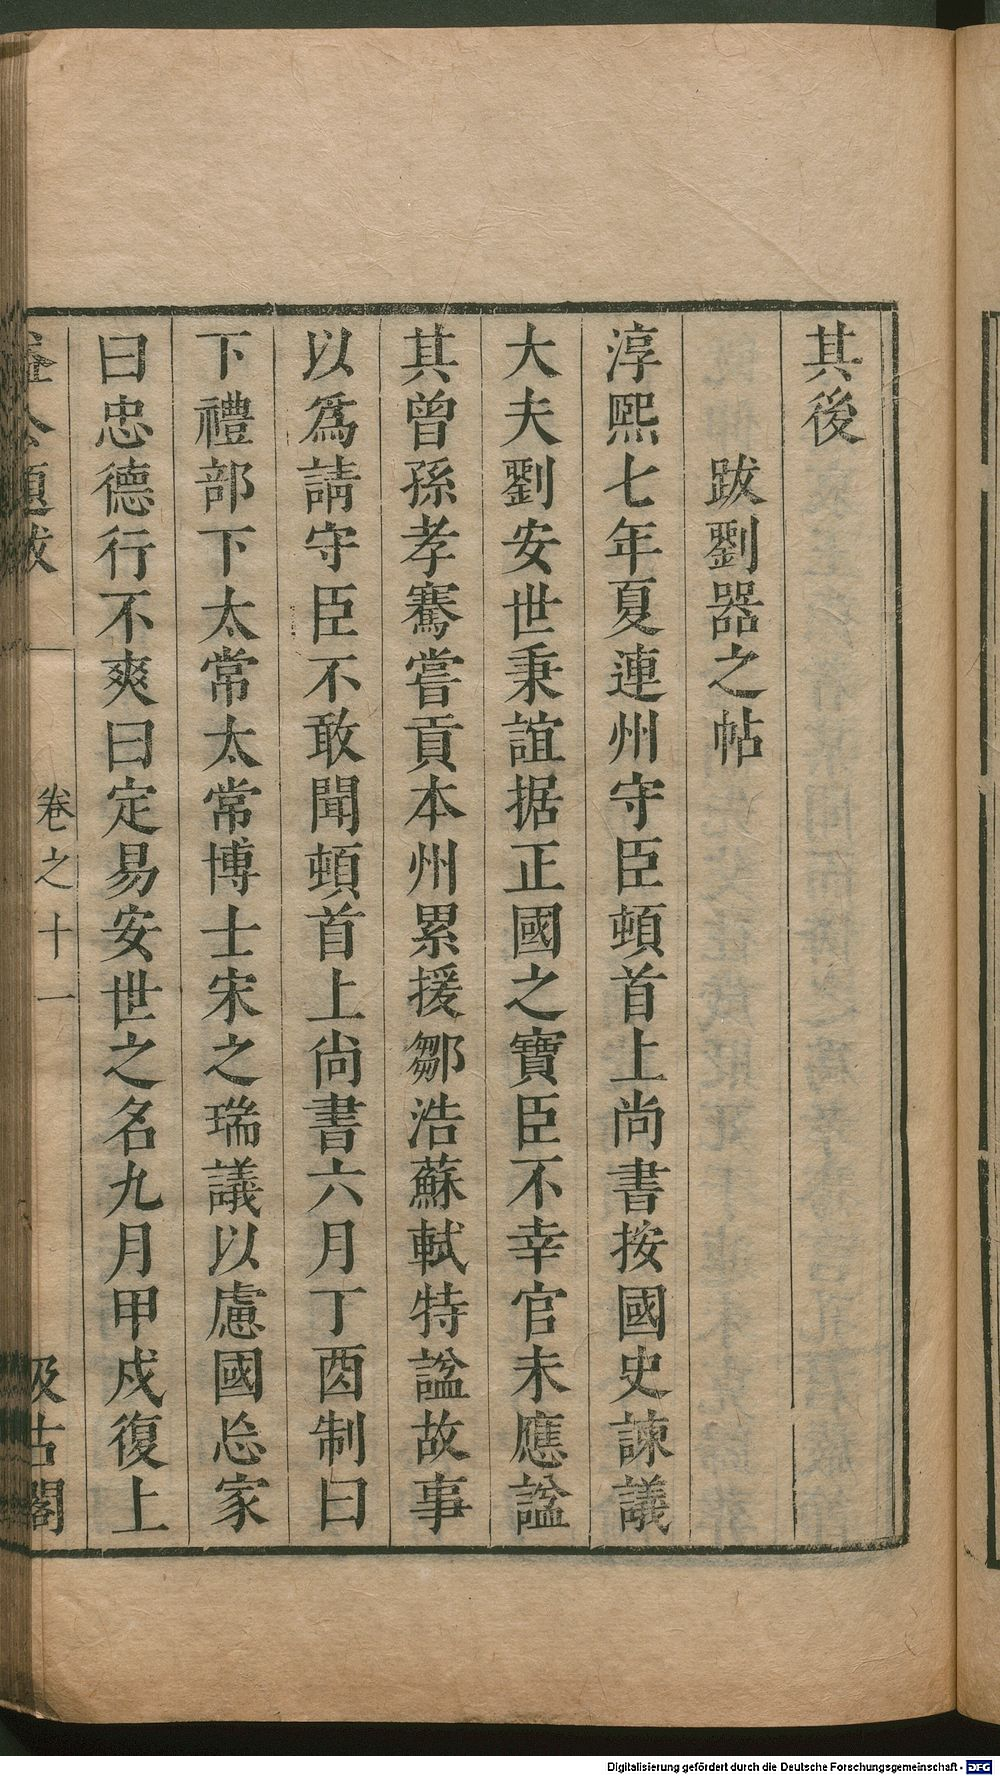 其後
跋劉器之帖
淳熙七年夏連州守臣頓首上尚書按國史諫議
大夫劉安世秉誼据正國之寶臣不幸官未應諡
其曾孫孝騫嘗貢本州累援鄒浩蘇軾特諡故事
以爲請守臣不敢聞頓首上尚書六月丁酉制曰
下禮部下太常太常博士宋之瑞議以慮國忩家
曰忠德行不爽曰定易安世之名九月甲戍復上
益公題跋
卷之十一
汲古閣
Digitalisierung gefördert durch die Deutsche Forschungsgemeinschaft - DFG